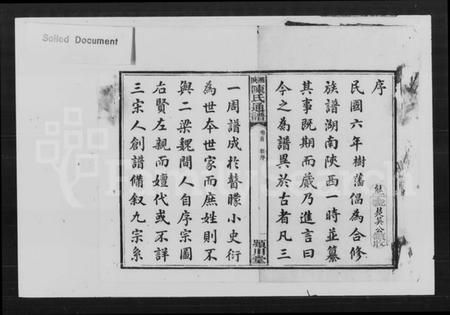 Soiled Document
序
民國六年樹藩倡為合修
族譜湖南陝西一時並纂
其事既期而蕆乃進言曰
今之為譜異於古者凡三
陳氏通譜
潁川堂
一周譜成於瞽矇小史衍
為世本世家而庶姓則不
與二梁魏間人自序宗圖
右賢左親而嬗代或不詳
三宋人創譜備叙九宗系